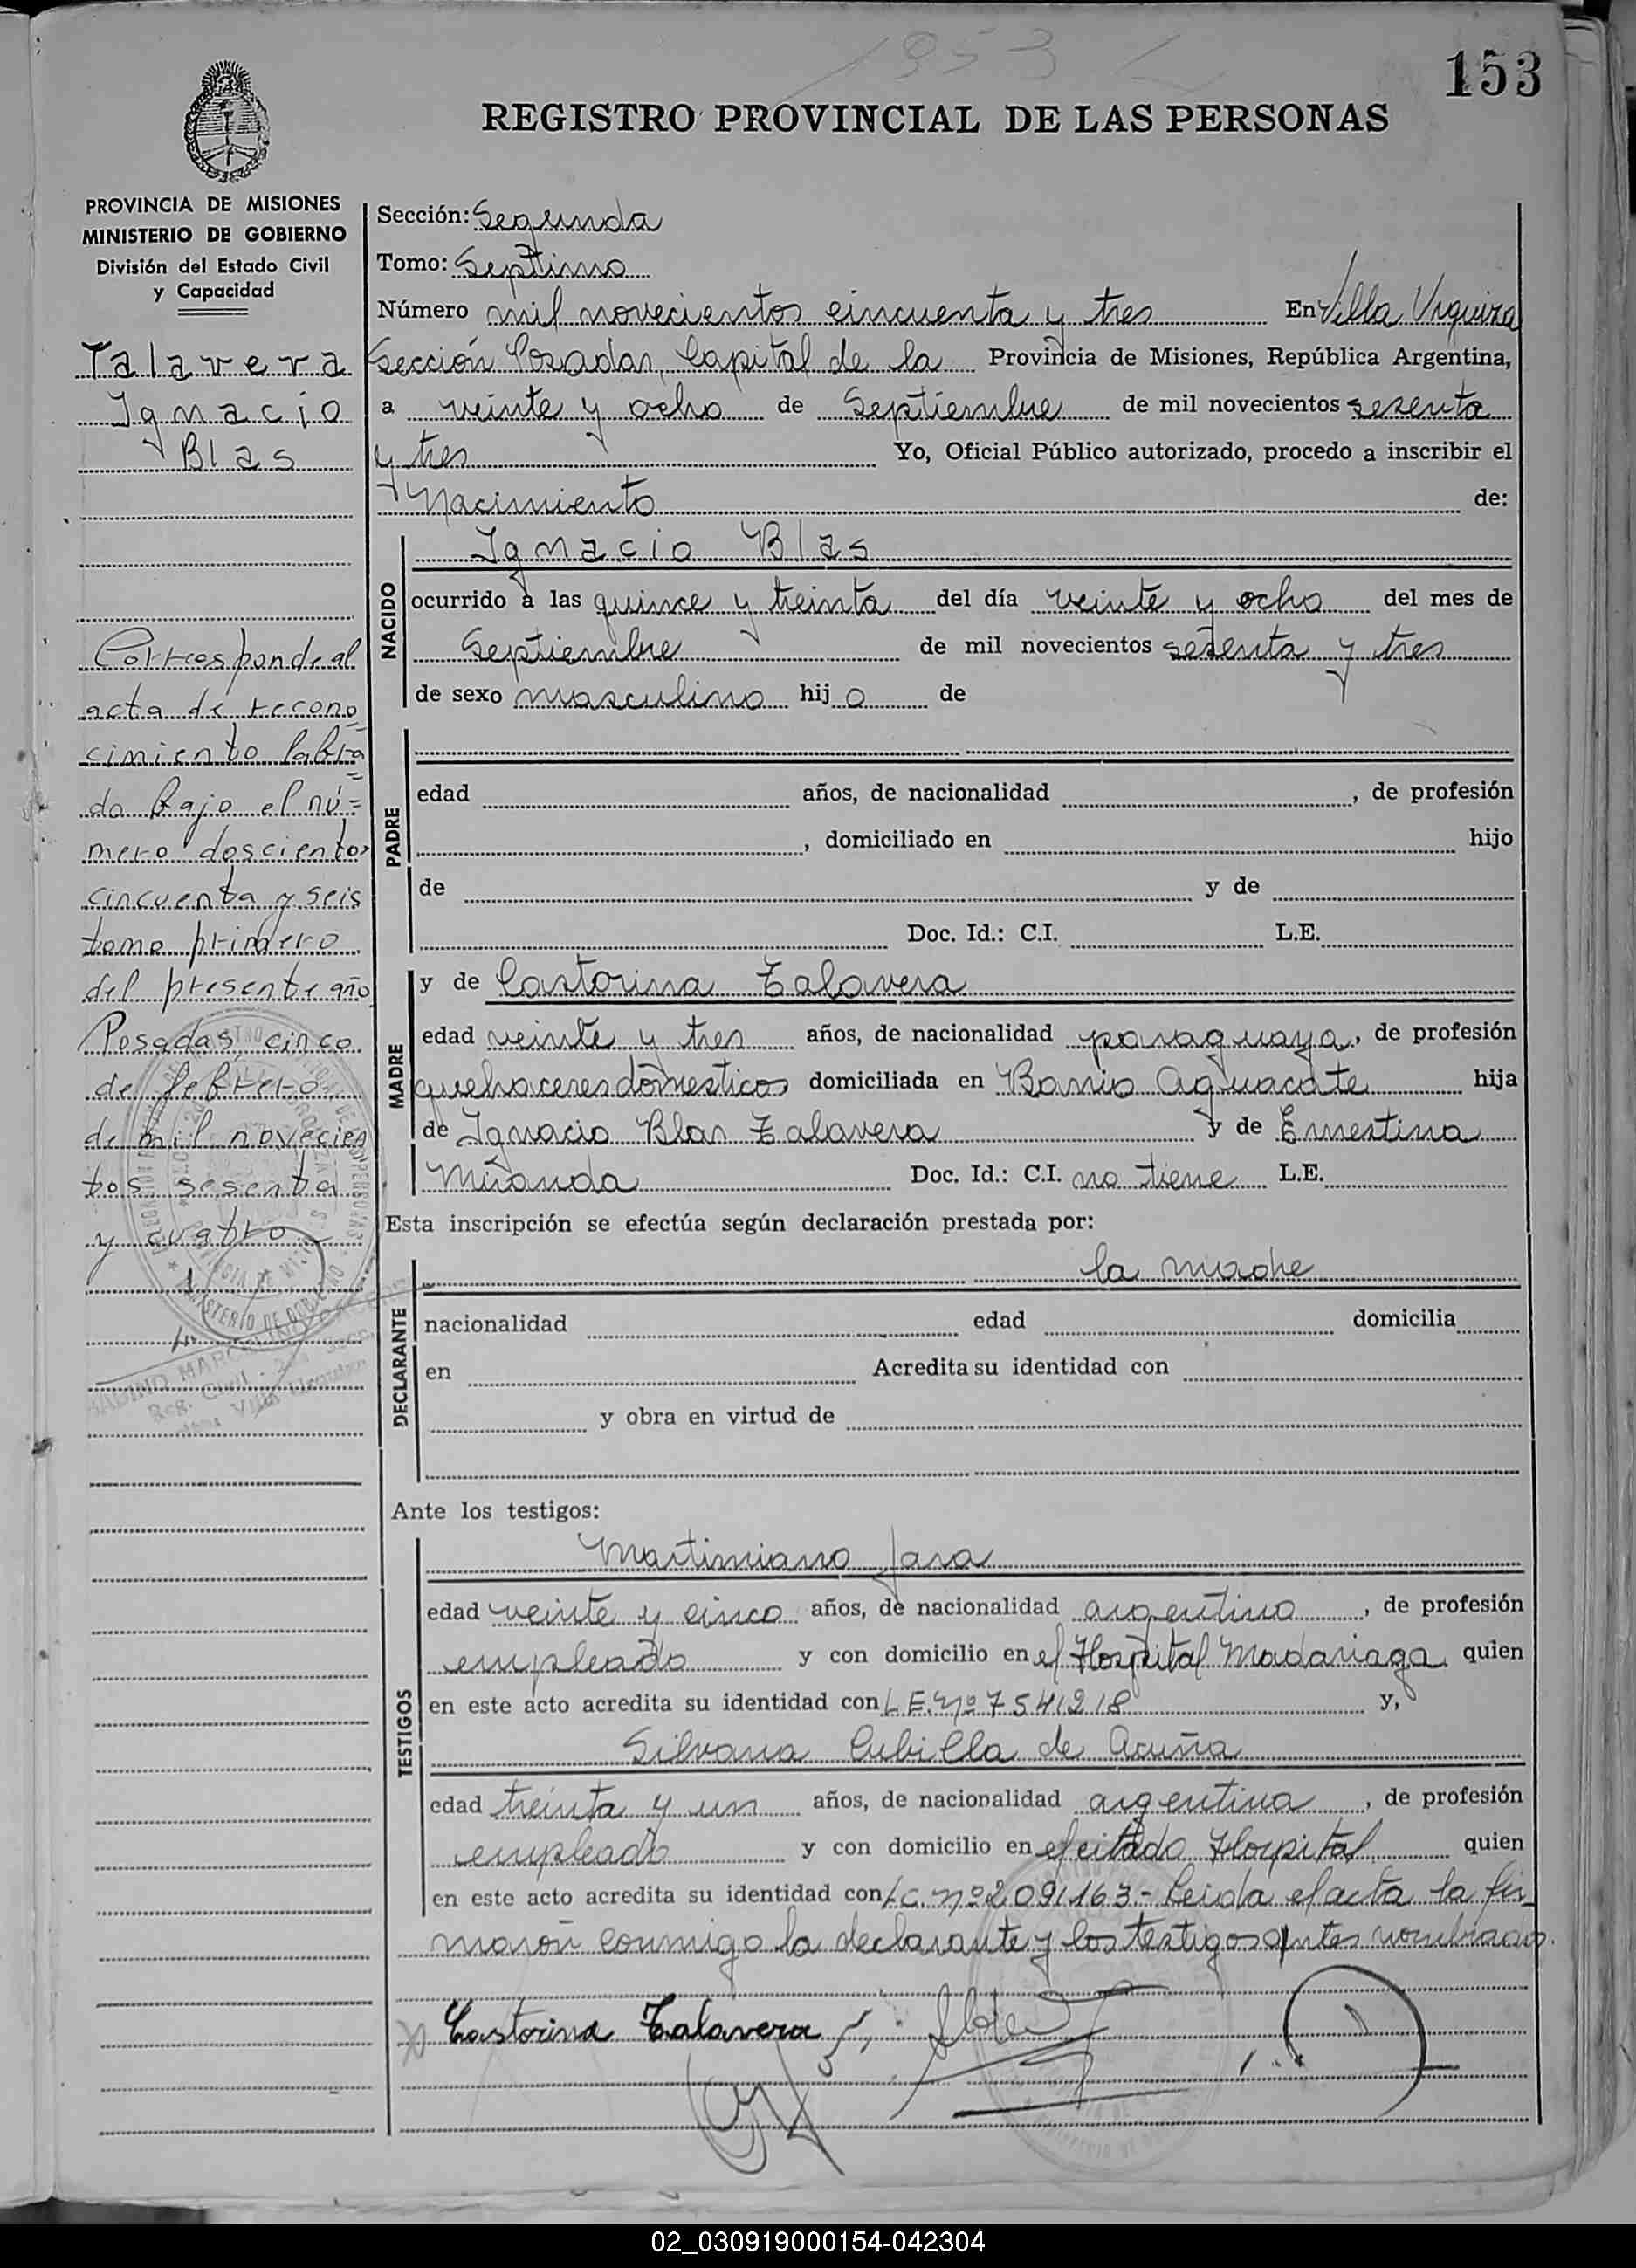 1953
153
REGISTRO PROVINCIAL DE LAS PERSONAS
PROVINCIA DE MISIONES
MINISTERIO DE GOBIERNO
División del Estado Civil
y Capacidad
Talavera
Ignacio
Blas
Corresponde al
acta de recono
cimiento labra
do bajo el nú=
mero doscientos
cincuenta y seis
tomo primero
del presente año
Posadas, cinco
de febrero
de mil novecien
tos sesenta
y cuatro
Sección: Segunda
Tomo: Septimo
Número mil novecientos cincuenta y tres En Villa Urquiza
Sección Posadas, Capital de la Provincia de Misiones, República Argentina,
a veinte y ocho de Septiembre de mil novecientos sesenta
y tres Yo, Oficial Público autorizado, procedo a inscribir el
Nacimiento de:
NACIDO
Ignacio Blas
ocurrido a las quince y treinta del día veinte y ocho del mes de
Septiembre de mil novecientos sesenta y tres
de sexo masculino hijo de
PADRE
edad años, de nacionalidad , de profesión
, domiciliado en hijo
de y de
Doc. Id.: C.I. L.E.
MADRE
y de Castorina Talavera
edad veinte y tres años, de nacionalidad paraguaya, de profesión
quehaceres domesticos domiciliada en Barrio Aguacate hija
de Ignacio Blas Talavera y de Ernestina
Miranda Doc. Id.: C.I. no tiene L.E.
Esta inscripción se efectúa según declaración prestada por:
DECLARANTE
la madre
nacionalidad edad domicilia
en Acredita su identidad con
y obra en virtud de
Ante los testigos:
TESTIGOS
Martimiano Jara
edad veinte y cinco años, de nacionalidad argentino, de profesión
empleado y con domicilio en el Hospital Madariaga quien
en este acto acredita su identidad con L.E. nº 7541218 y,
Silvana Cubilla de Acuña
edad treinta y un años, de nacionalidad argentina, de profesión
empleado y con domicilio en el citado Hospital quien
en este acto acredita su identidad con L.C. nº 2091163.- Leida el acta la fir_
maron conmigo la declarante y los testigos antes nombrados.
Castorina Talavera
02_030919000154-042304